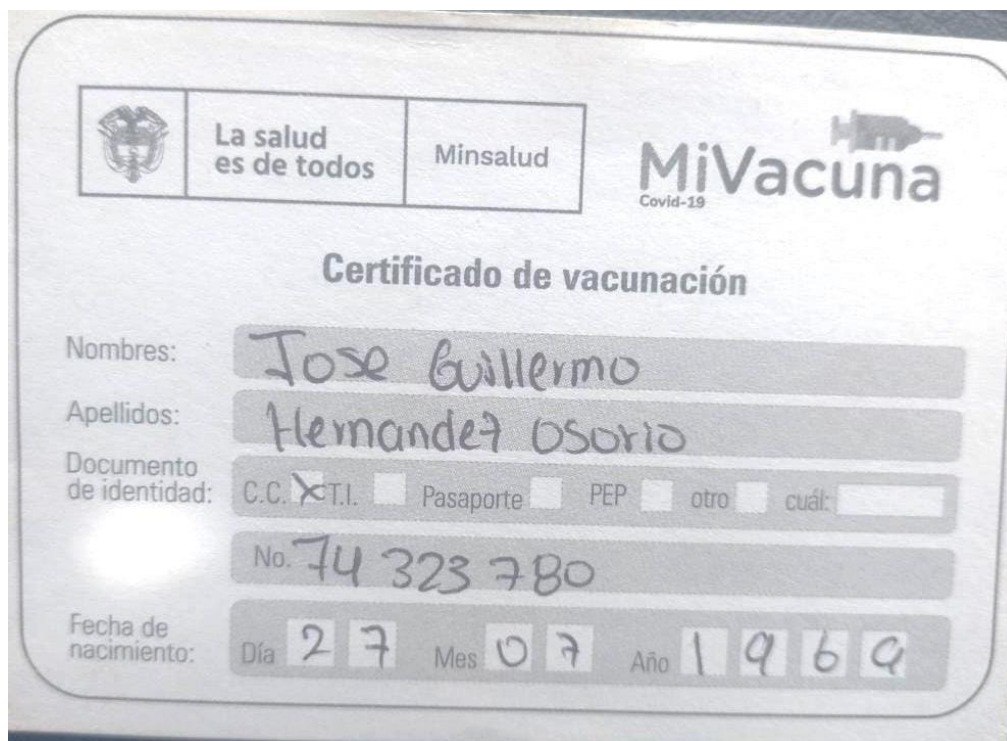 La salud
es de todos
Minsalud
MiVacuna
Covid-19
Certificado de vacunación
Nombres: Jose Guillermo
Apellidos: Hernandez Osorio
Documento
de identidad: C.C. X T.I. Pasaporte PEP otro cuál:
No. 74 323 780
Fecha de
nacimiento: Día 27 Mes 07 Año 1969